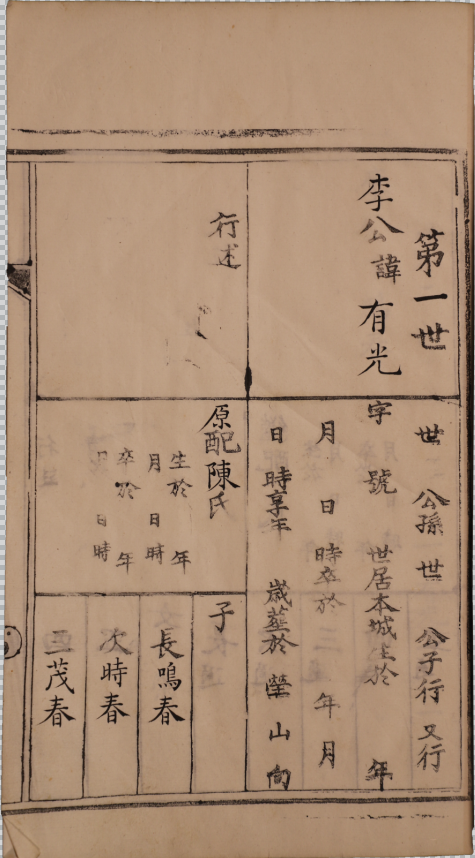 第一世
李公諱有光
世 公孫 世 公子行 又行
字 號 世居本城生於 年
月 日 時卒於 年 月
日 時享年 歲葬於 塋 山 向
行述
原配陳氏
生於 年
月 日 時
卒於 年
月 日 時
子
長鳴春
次時春
三茂春